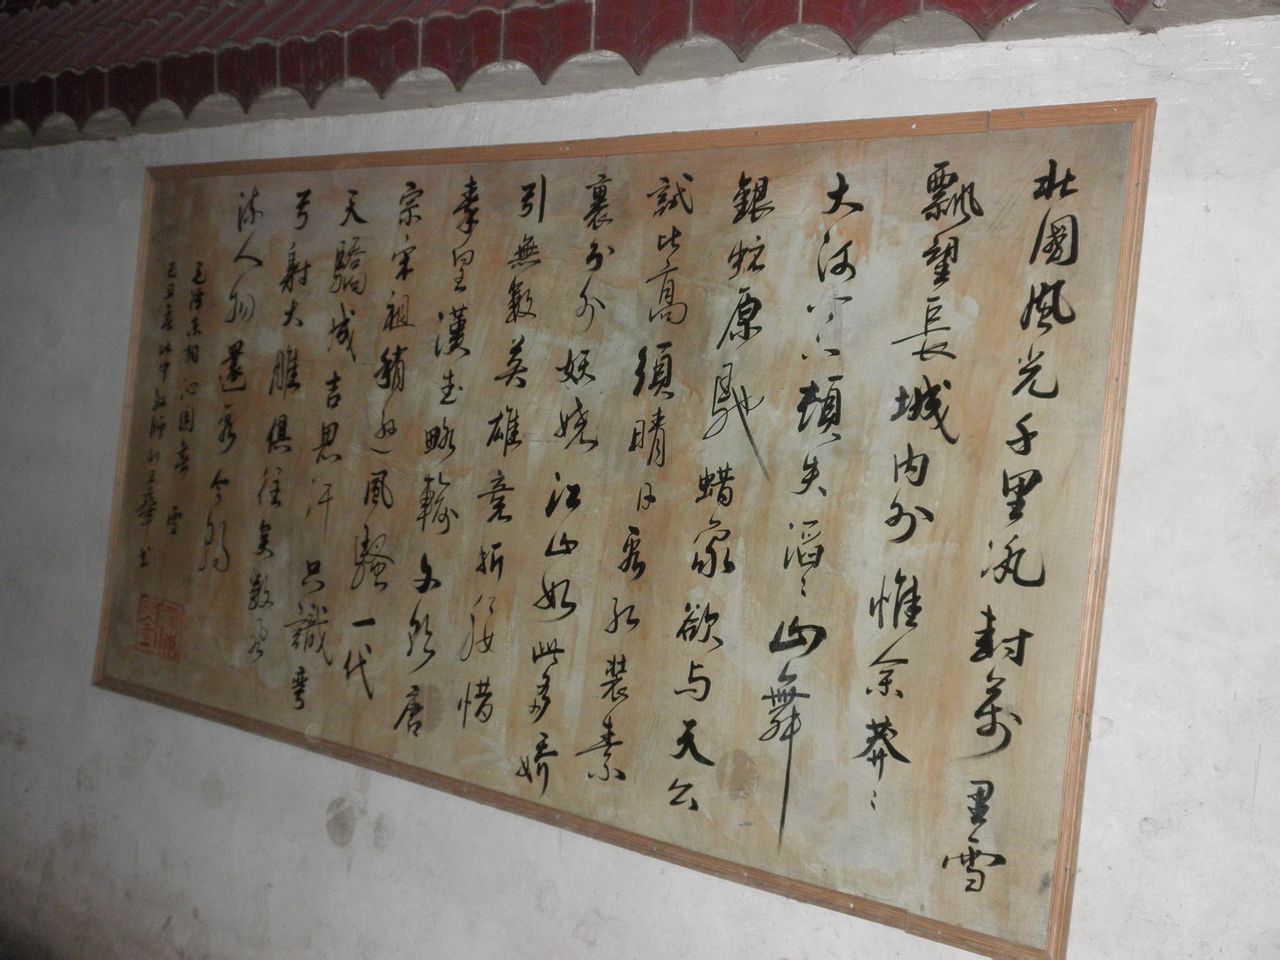 北國風光千里冰封萬里雪
飄望長城内外惟余莽〻
大河上下頓失滔〻山舞
銀蛇原馳蜡象欲与天公
試比高須晴日看红装素
裹分外妖娆江山如此多娇
引無數英雄竞折腰惜
秦皇漢武略輸文彩唐
宗宋祖稍逊風騷一代
天驕成吉思汗只識弯
弓射大雕俱往矣數风
流人物還看今朝
毛澤东詞沁园春 雪
己丑春 师 书